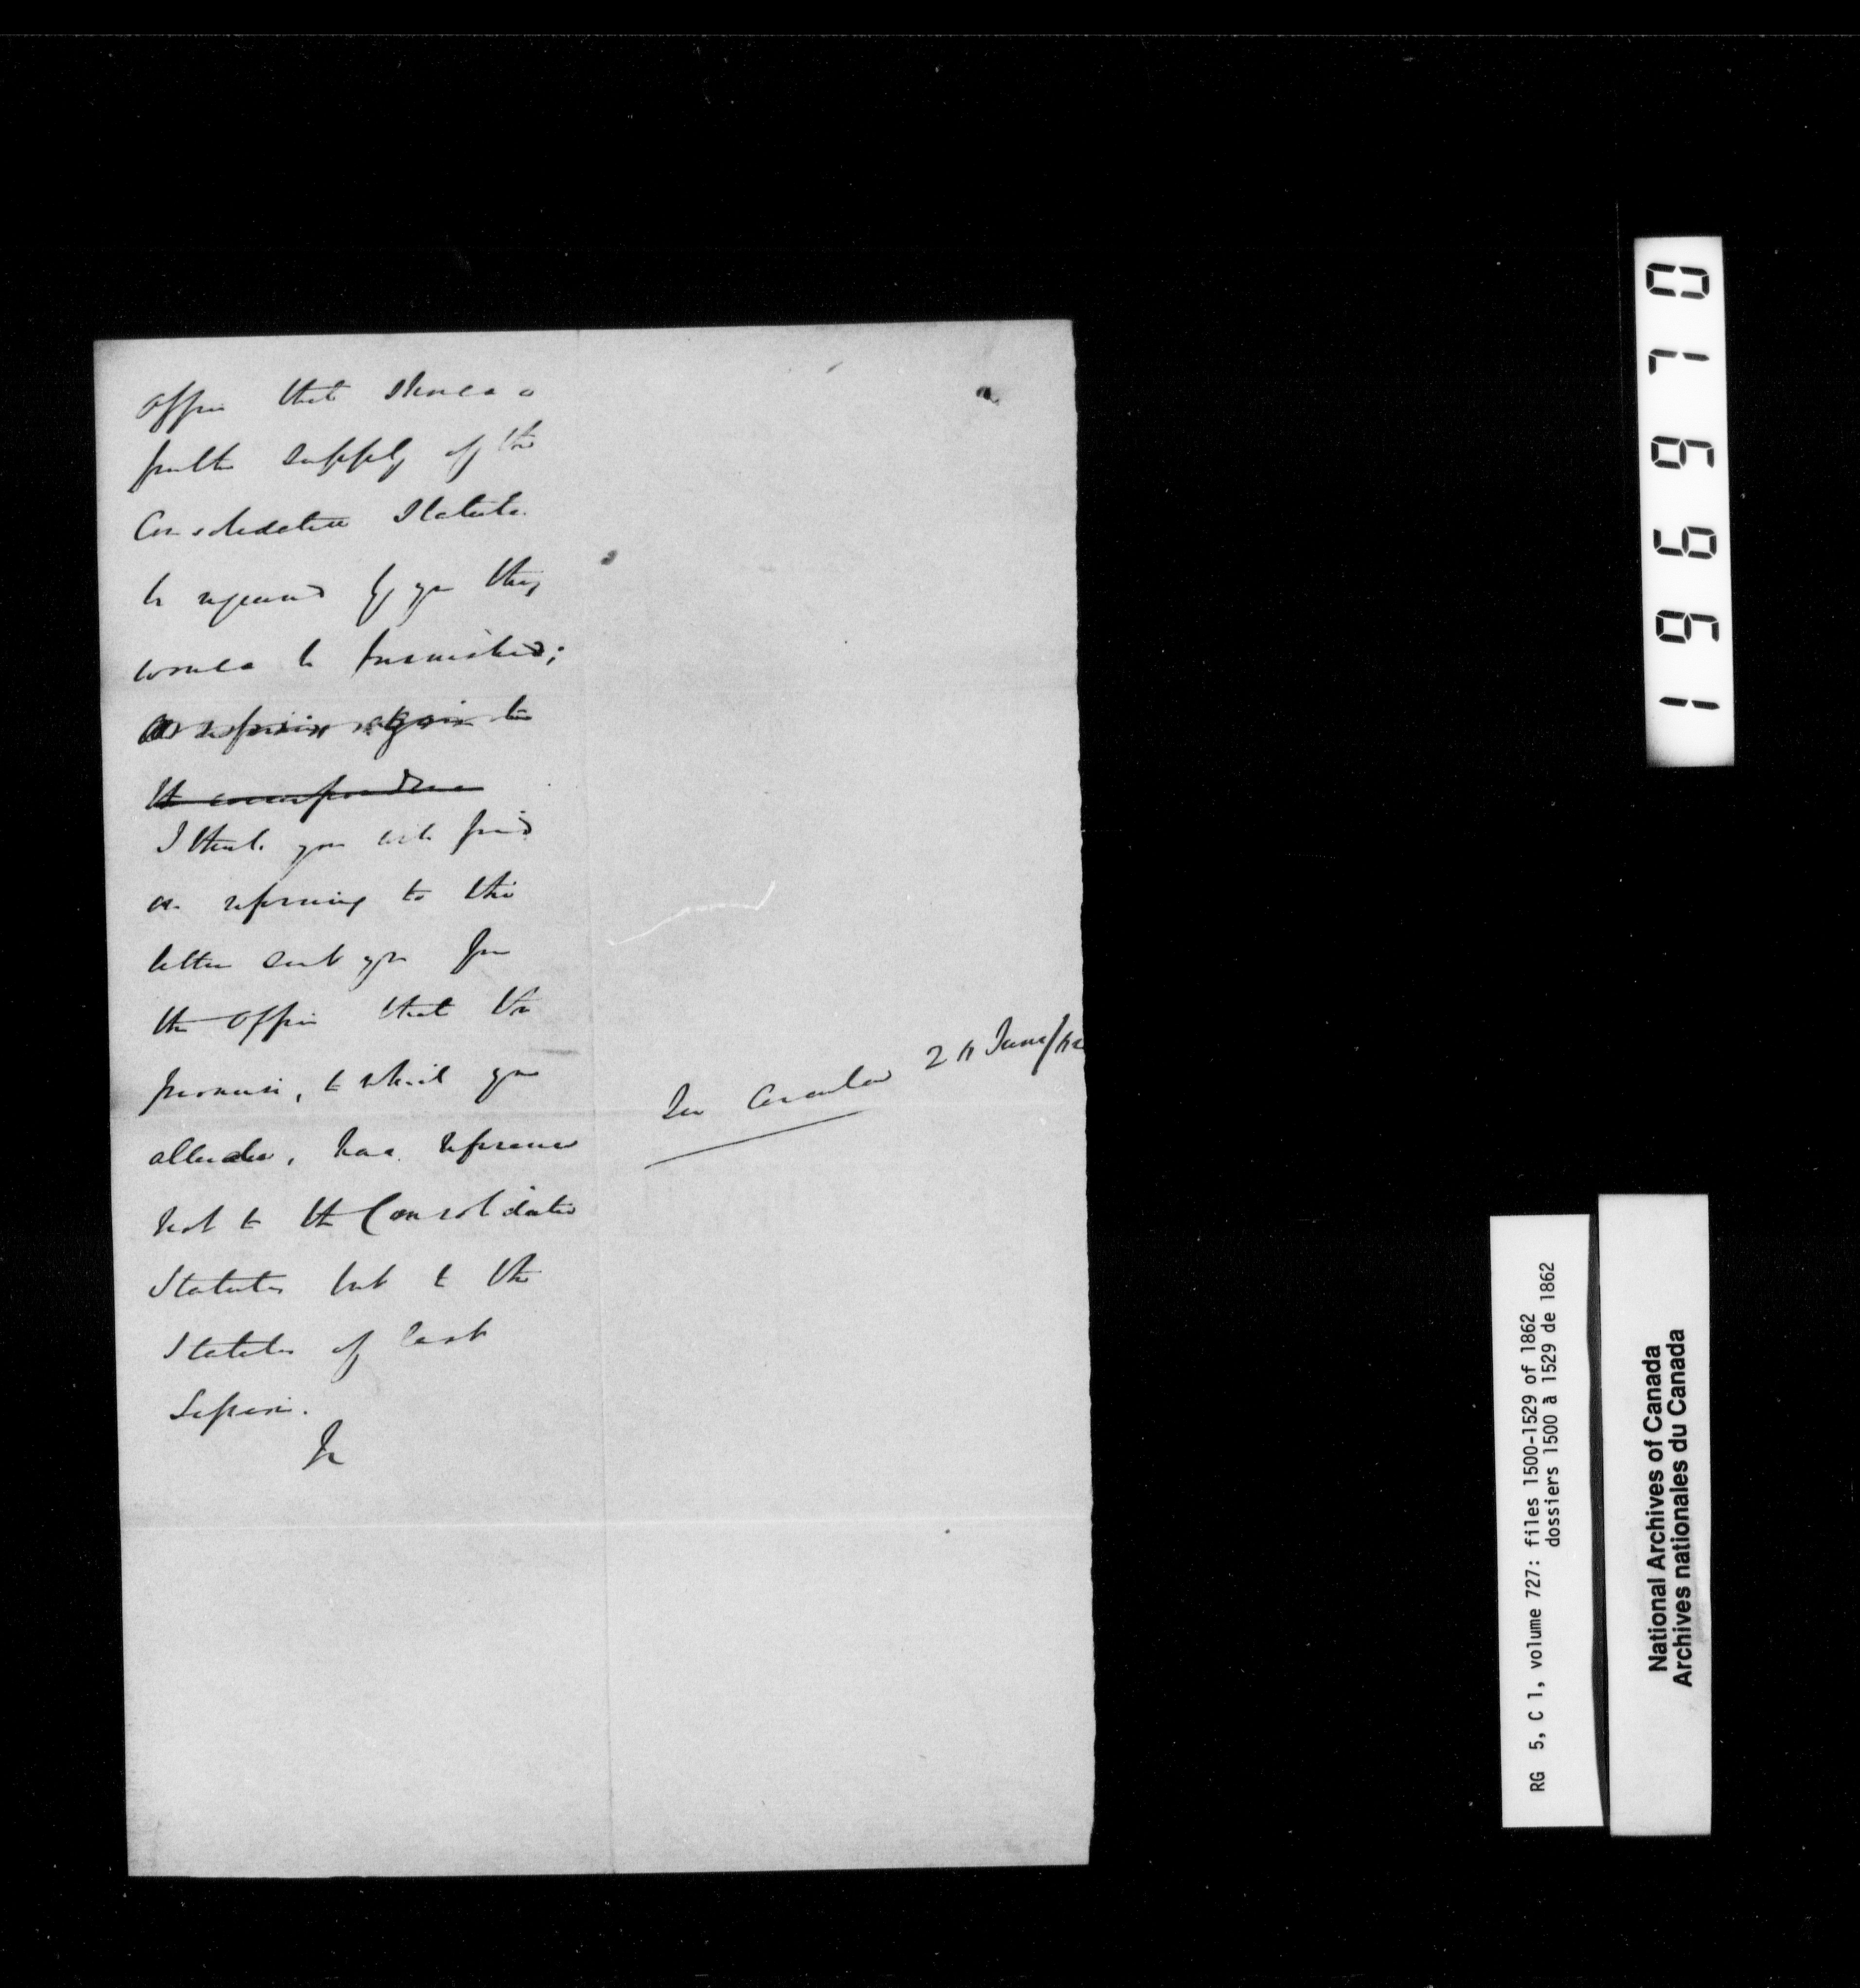 office that should a
further supply of the
Consolidated Statutes
be required by you they
would be furnished;
on referring again to
the correspondence
I think you will find
on referring to the
letter sent you from
the office that the
promise, to which you
allude, has reference
not to the Consolidated
Statutes but to the
Statutes of last
Session.
See Circular 24 June/62
196970
RG 5, C 1, volume 727: files 1500-1529 of 1862
dossiers 1500 à 1529 de 1862
National Archives of Canada
Archives nationales du Canada